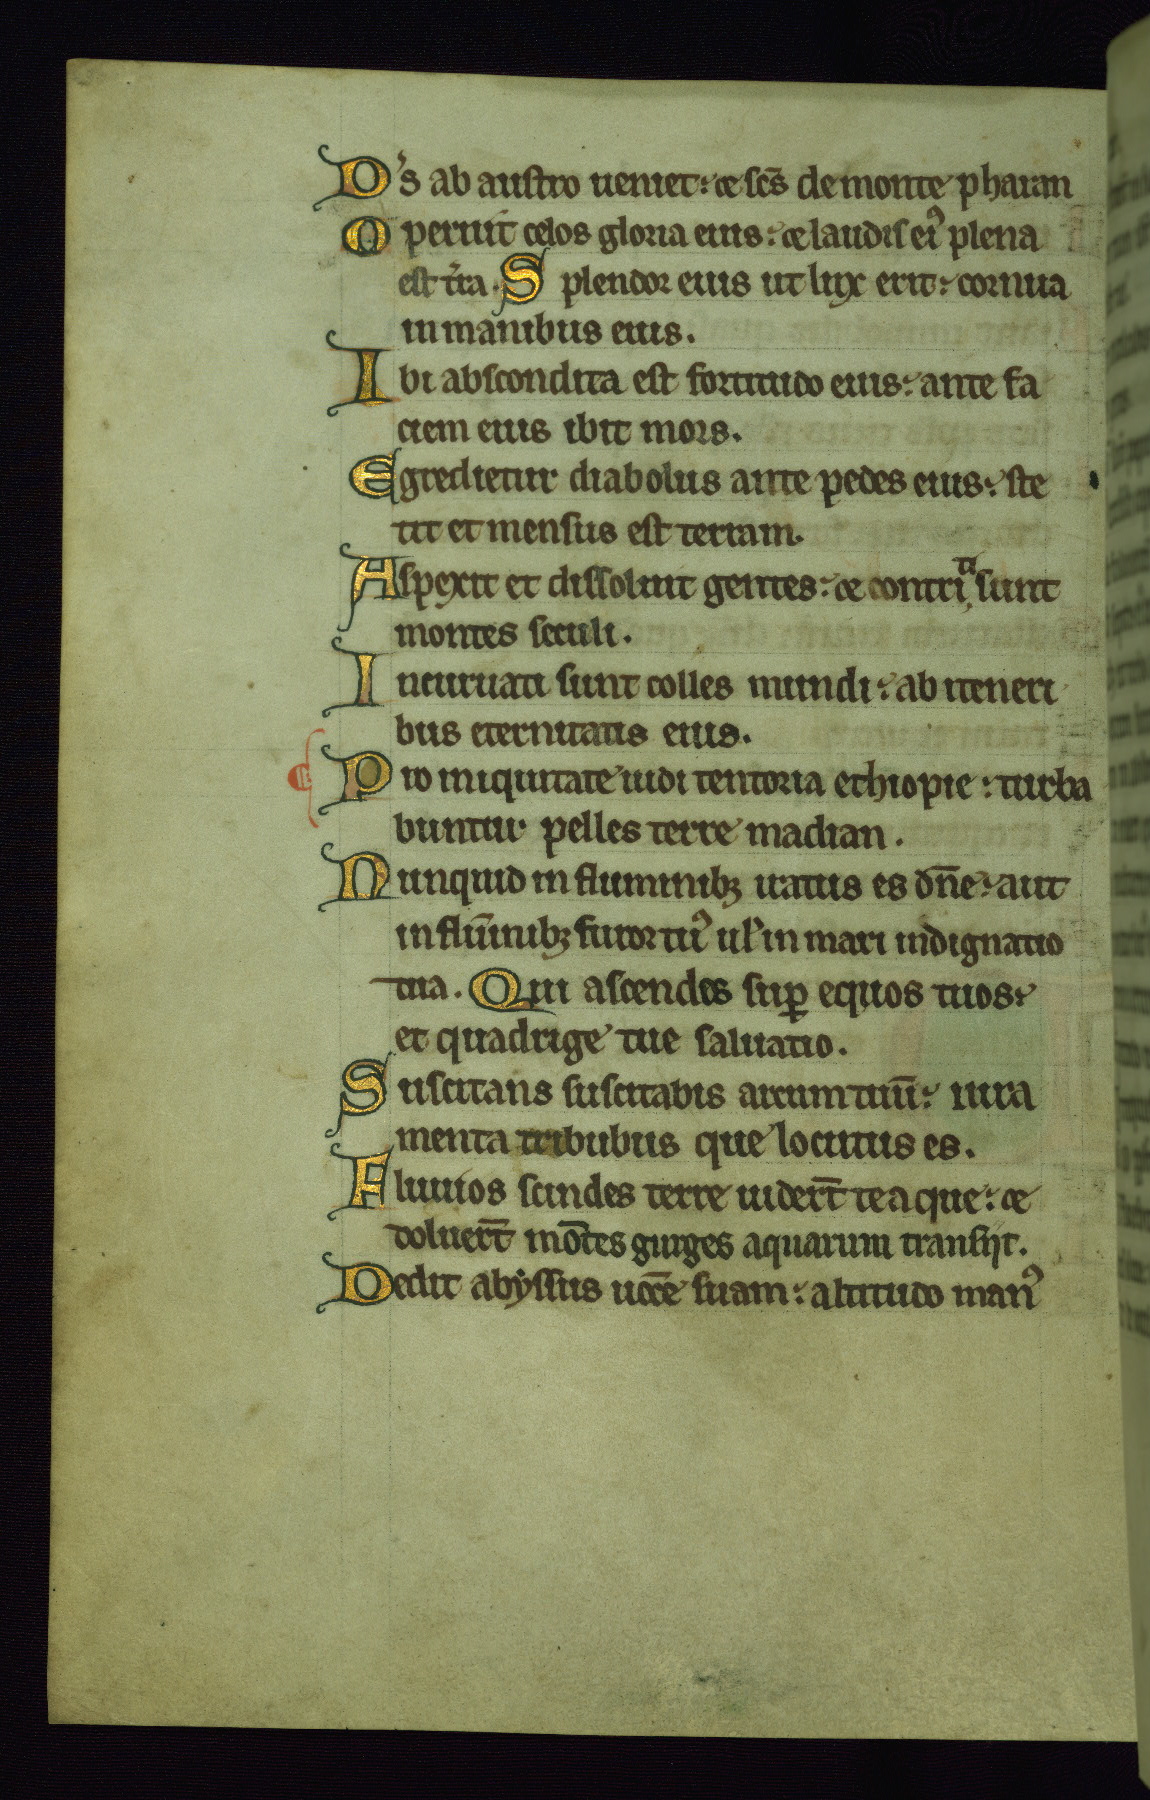 D's ab austro ueniet: ⁊ sc̄s de monte pharan
Operuit celos gloria eius: ⁊ laudis ei᾿ plena
est t̉ra. Splendor eius ut lux erit: cornua
in manibus eius.
Ibi abscondita est fortitudo eius: ante fa
ciem eius ibit mors.
Egredietur diabolus ante pedes eius: ste
tit et mensus est terram.
Aspexit et dissoluit gentes: ⁊ contri ti sunt
montes seculi.
Incuruati sunt colles mundi: ab iteneri
bus eternitatis eius.
Pro iniquitate uidi tentoria ethiopie: turba
buntur pelles terre madian.
Nunquid in fluminibꝫ iratus es dn̄e: aut
in flūinibꝫ furor tu᾿ ul' in mari indignatio
tua. Qui ascendes suꝑ equos tuos:
et quadrige tue saluatio.
Suscitans suscitabis arcum tuū: iura
menta tribubus que locutus es.
Fluuios scindes terre uider̄t te aque: ⁊
doluer̄t mōtes gurges aquarum transijt.
Dedit abyssus uocē suam: altitudo man᾿